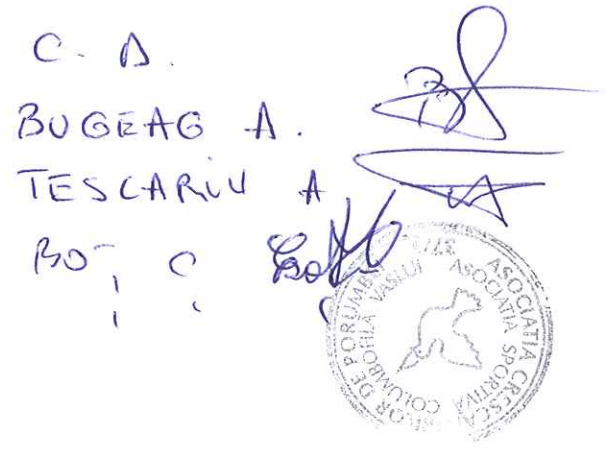 C. A.
BUGEAG A.
TESCARIU A
BOȚ C
ASOCIATIA CRESCATORILOR DE PORUMBEI
ASOCIATIA SPORTIVA COLUMBOFILA VASLUI